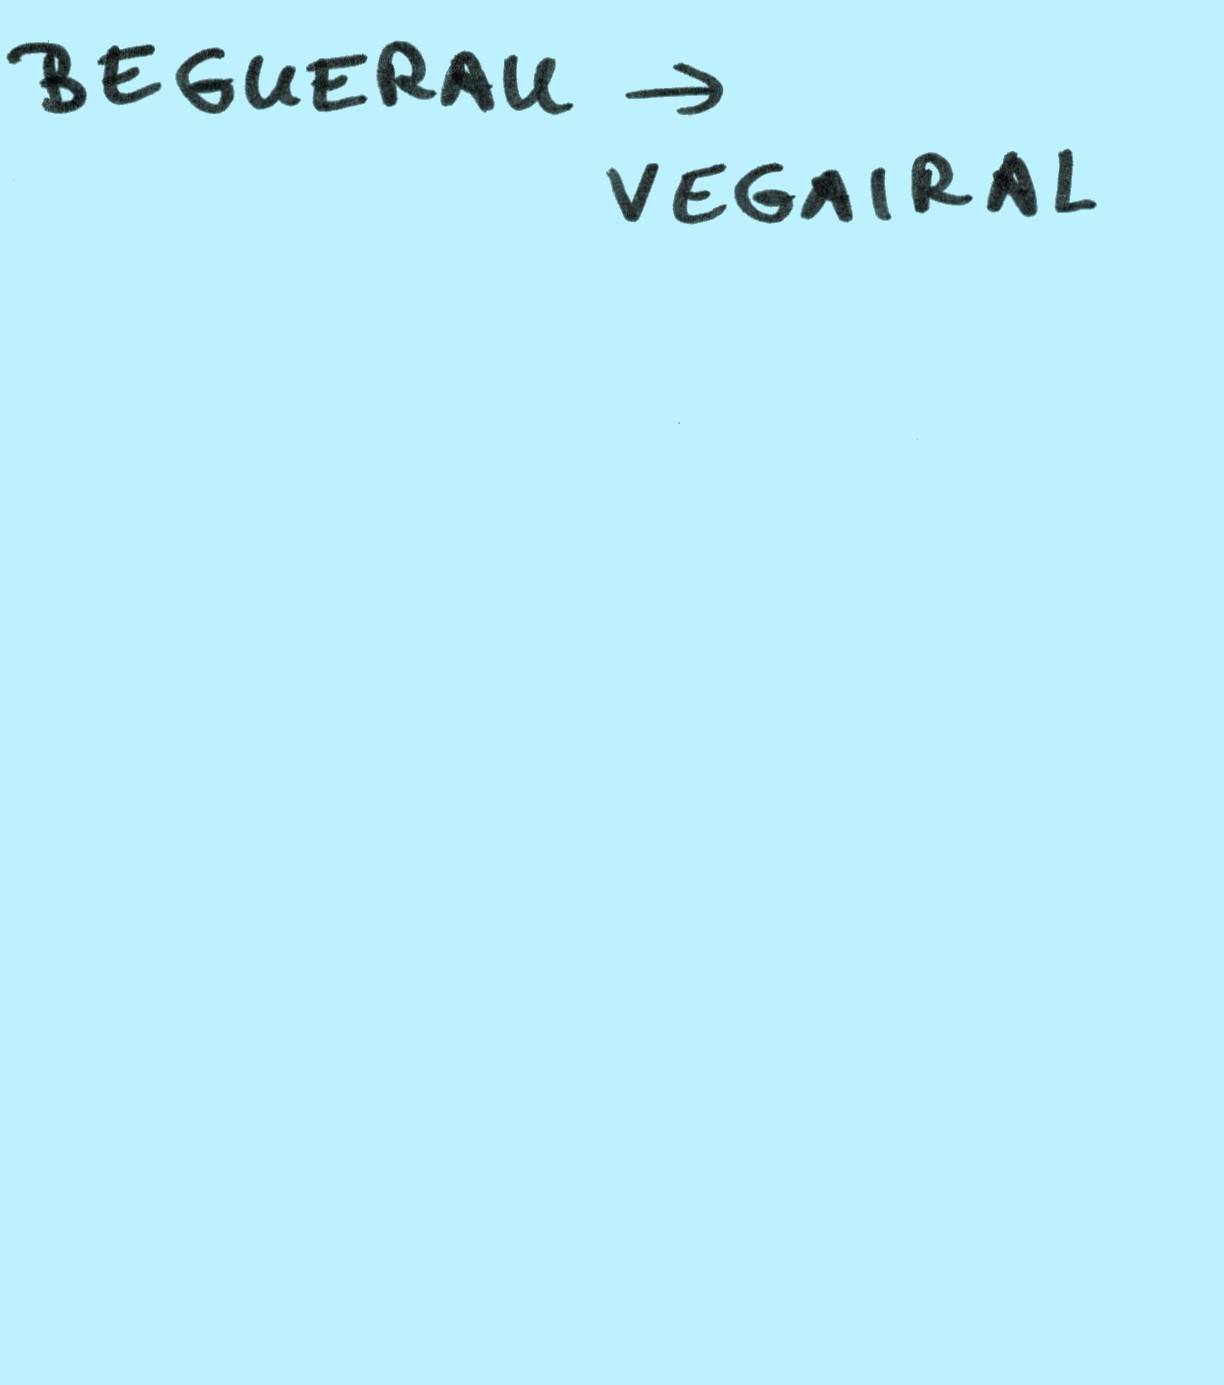 BEGUERAU →
VEGAIRAL